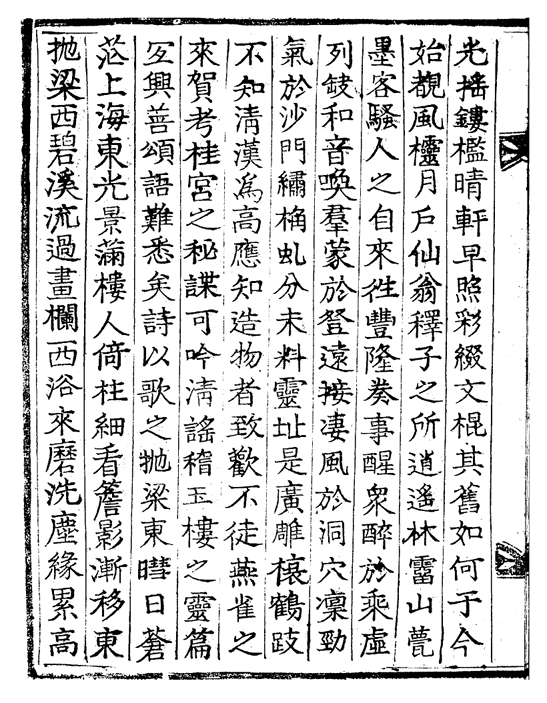 光搖鏤檻晴軒早照彩綴文棍其舊如何于今
始覩風欞月戶仙翁釋子之所逍遙林霤山甍
墨客騷人之自來徃豐隆奏事醒衆醉於乘虛
列缺和音喚羣蒙於登遠接凄風於洞穴凜勁
氣於沙門繡桷虬分未料靈址是廣雕榱鶴跂
不知淸漢爲高應知造物者致歡不徒燕雀之
來賀考桂宮之秘諜可吟淸謠稽玉樓之靈篇
冝興善頌語難悉矣詩以歌之拋梁東暳日蒼
茫上海東光景滿樓人倚柱細看簷影漸移東
拋梁西碧溪流過畫欄西浴來磨洗塵緣累高